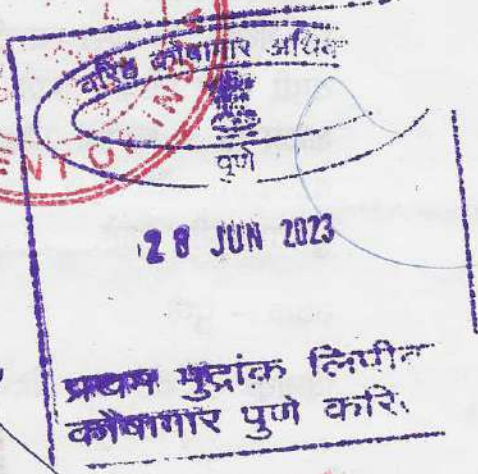 वरिष्ठ कोषागार अधिक
पुणे
28 JUN 2023
प्रथम मुद्रांक लिपीक
कोषागार पुणे करि